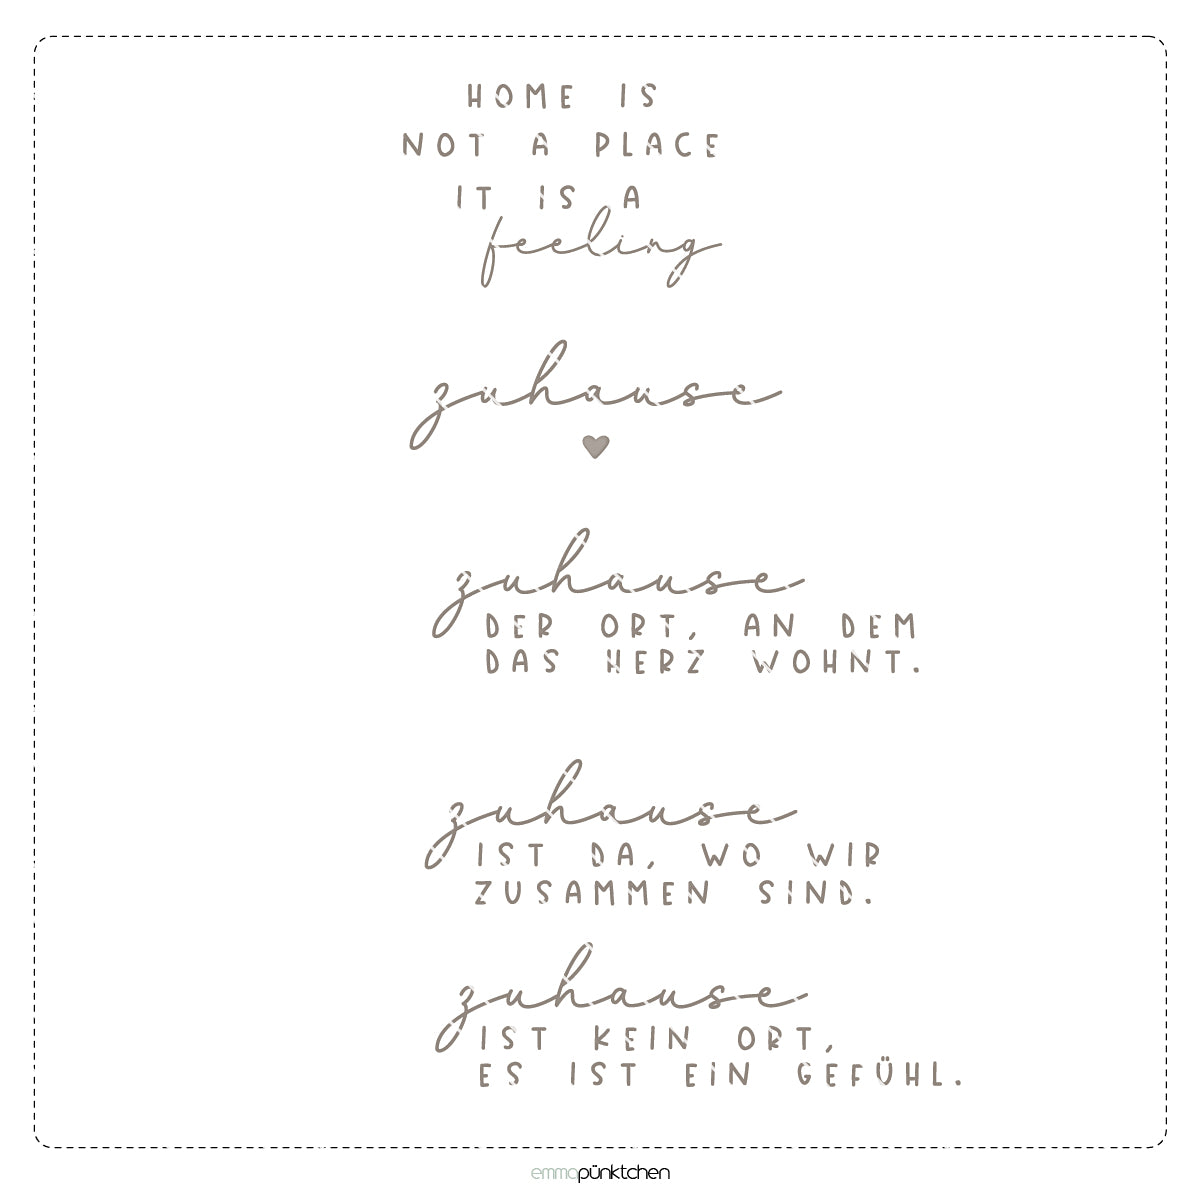 HOME IS
NOT A PLACE
IT IS A
feeling
zuhause
zuhause
DER ORT, AN DEM
DAS HERZ WOHNT.
zuhause
IST DA, WO WIR
ZUSAMMEN SIND.
zuhause
IST KEIN ORT,
ES IST EIN GEFÜHL.
emmapünktchen